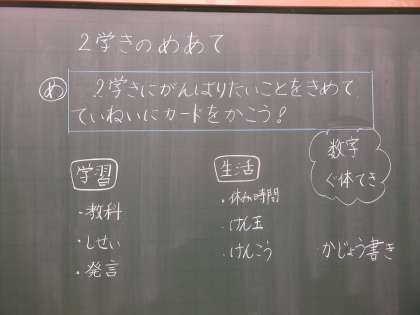 2学きのめあて
め 2学きにがんばりたいことをきめて
ていねいにカードをかこう!
学習
・教科
・しせい
・発言
生活
・休み時間
・けん玉
・けんこう
数字
ぐ体てき
かじょう書き